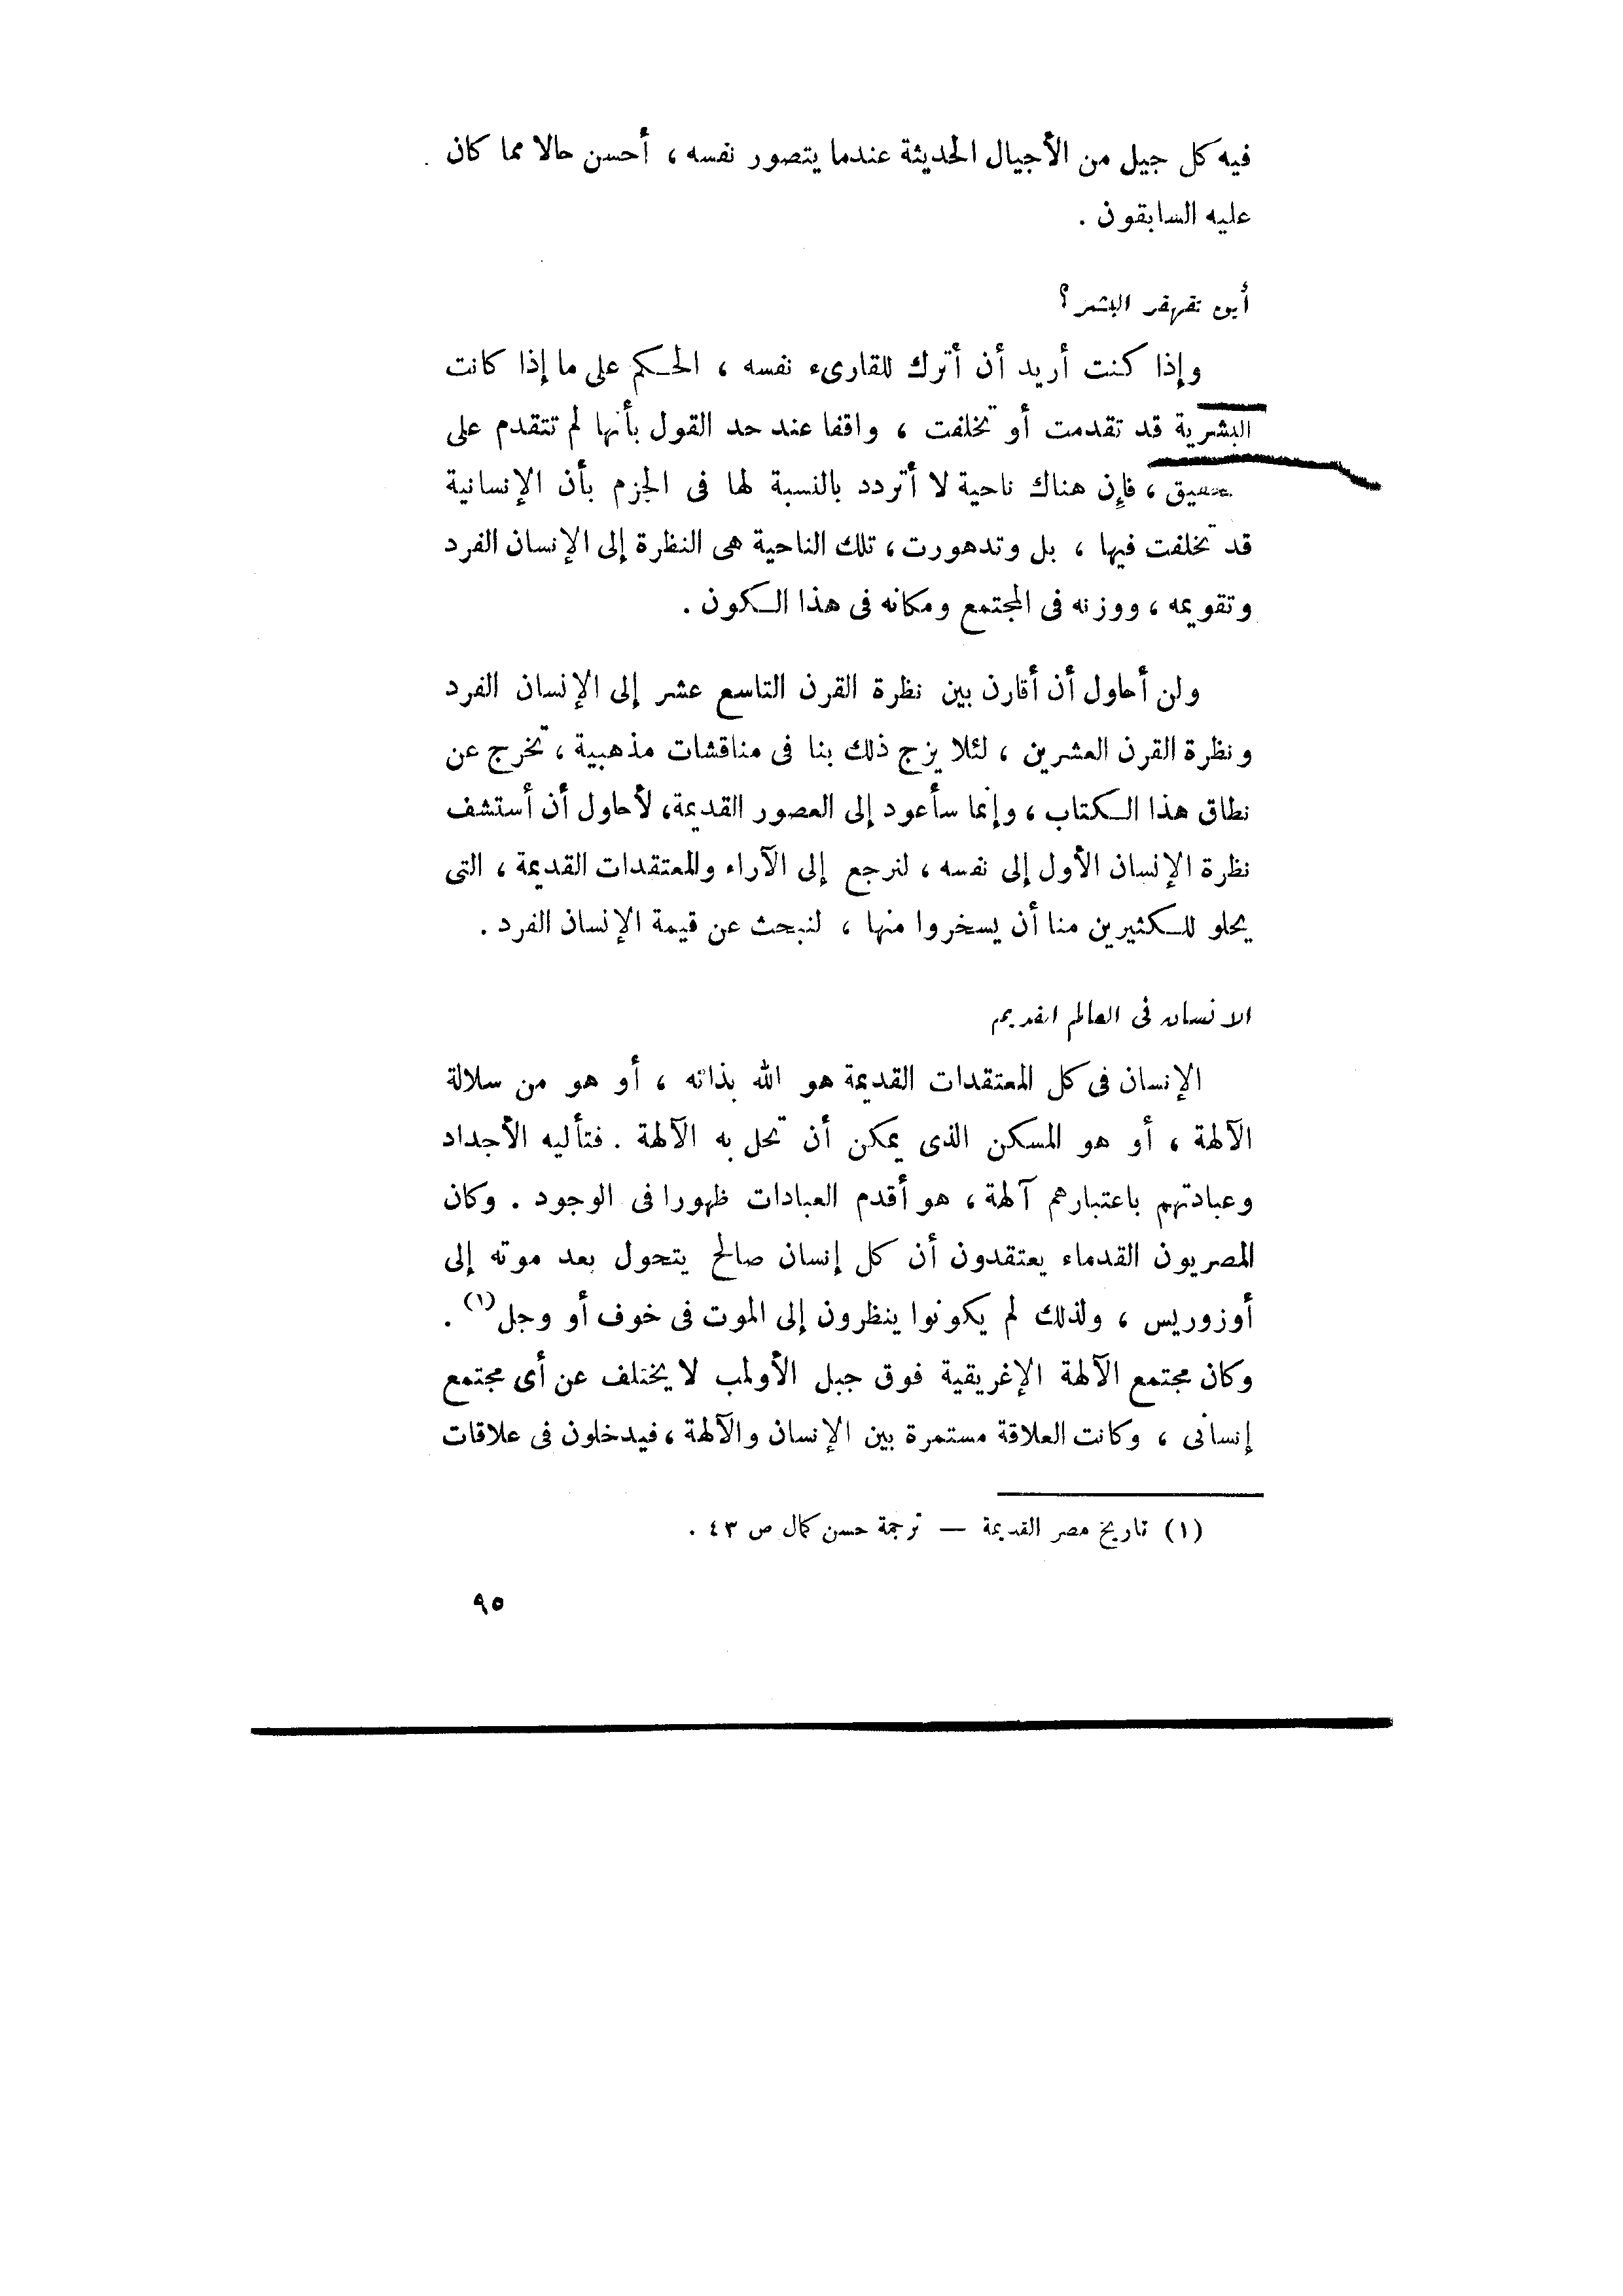 فيه كل جيل من الأجيال الحديثة عندما يتصور نفسه ، أحسن حالا مما كان
عليه السابقون .
أين تقهقر البشر ؟
وإذا كنت أريد أن أترك للقارىء نفسه ، الحكم على ما إذا كانت
البشرية قد تقدمت أو تخلفت ، واقفا عند حد القول بأنها لم تتقدم على
، فإن هناك ناحية لا أتردد بالنسبة لها فى الجزم بأن الإنسانية
قد تخلفت فيها ، بل وتدهورت ، تلك الناحية هى النظرة إلى الإنسان الفرد
وتقويمه ، ووزنه فى المجتمع ومكانه فى هذا الكون .
ولن أحاول أن أقارن بين نظرة القرن التاسع عشر إلى الإنسان الفرد
ونظرة القرن العشرين ، لئلا يزج ذلك بنا فى مناقشات مذهبية ، تخرج عن
نطاق هذا الكتاب ، وإنما سأعود إلى العصور القديمة ، لأحاول أن أستشف
نظرة الإنسان الأول إلى نفسه ، لنرجع إلى الآراء والمعتقدات القديمة ، التى
يحلو للكثيرين منا أن يسخروا منها ، لنبحث عن قيمة الإنسان الفرد .
الانسان فى العالم القديم
الإنسان فى كل المعتقدات القديمة هو الله بذاته ، أو هو من سلالة
الآلهة ، أو هو المسكن الذى يمكن أن تحل به الآلهة . فتأليه الأجداد
وعبادتهم باعتبارهم آلهة ، هو أقدم العبادات ظهورا فى الوجود . وكان
المصريون القدماء يعتقدون أن كل إنسان صالح يتحول بعد موته إلى
أوزوريس ، ولذلك لم يكونوا ينظرون إلى الموت فى خوف أو وجل (١) .
وكان مجتمع الآلهة الإغريقية فوق جبل الأولمب لا يختلف عن أى مجتمع
إنسانى ، وكانت العلاقة مستمرة بين الإنسان والآلهة ، فيدخلون فى علاقات
(١) تاريخ مصر القديمة — ترجمة حسن كمال ص ٤٣ .
٩٥